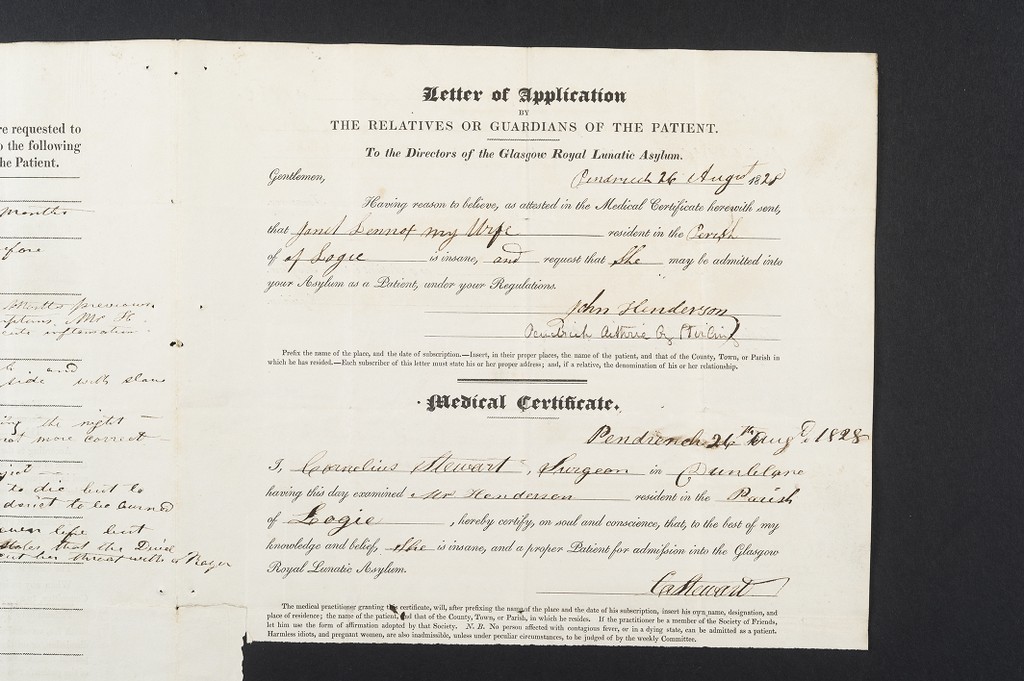 re requested to
o the following
he Patient.
months
before
months previous
Mr H
and
side with slow
the night
not more correct
to die but to
desist to be burned
life but
states that the Devil
cut her throat with a Razor
Letter of Application
BY
THE RELATIVES OR GUARDIANS OF THE PATIENT.
To the Directors of the Glasgow Royal Lunatic Asylum.
Gentlemen,
Pendreich 26 August 1828
Having reason to believe, as attested in the Medical Certificate herewith sent,
that Janet Lennox my Wife resident in the Perish
of of Logie is insane, and request that She may be admitted into
your Asylum as a Patient, under your Regulations.
John Henderson
Pendreich Aithrie By Sterling
Prefix the name of the place, and the date of subscription.—Insert, in their proper places, the name of the patient, and that of the County, Town, or Parish in
which he has resided.—Each subscriber of this letter must state his or her proper address; and, if a relative, the denomination of his or her relationship.
Medical Certificate.
Pendreich 26th Augt 1828
I, Cornelius Stewart, Surgeon in Dunblane
having this day examined Mrs Henderson resident in the Parish
of Logie, hereby certify, on soul and conscience, that, to the best of my
knowledge and belief, She is insane, and a proper Patient for admission into the Glasgow
Royal Lunatic Asylum.
Cs Stewart
The medical practitioner granting this certificate, will, after prefixing the name of the place and the date of his subscription, insert his own name, designation, and
place of residence; the name of the patient, and that of the County, Town, or Parish, in which he resides. If the practitioner be a member of the Society of Friends,
let him use the form of affirmation adopted by that Society. N. B. No person affected with contagious fever, or in a dying state, can be admitted as a patient.
Harmless idiots, and pregnant women, are also inadmissible, unless under peculiar circumstances, to be judged of by the weekly Committee.